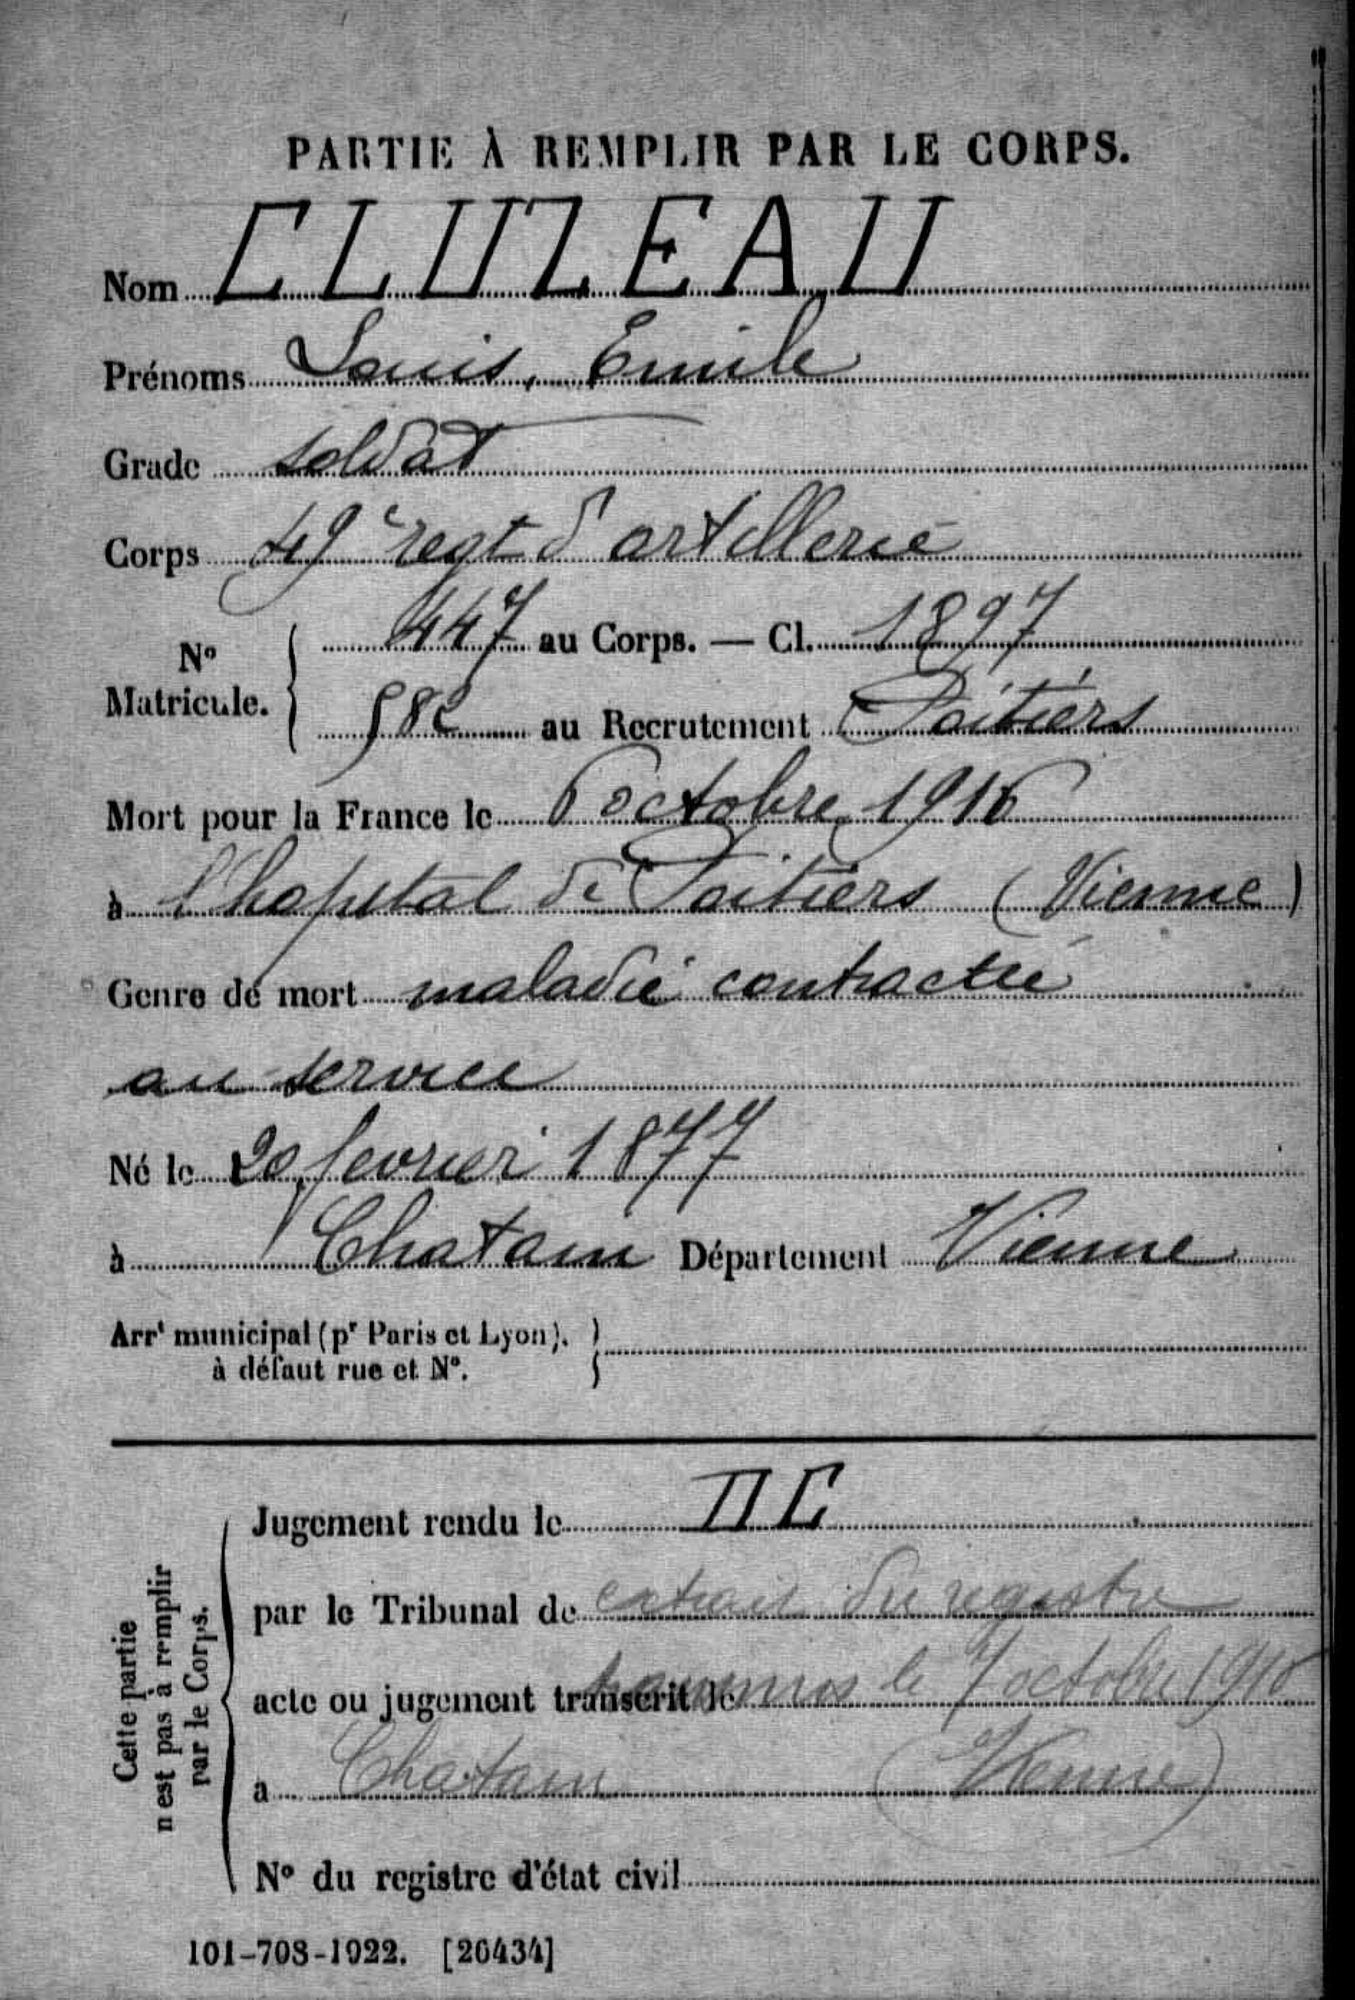 PARTIE À REMPLIR PAR LE CORPS.
Nom CLUZEAU
Prénoms Louis, Emile
Grade soldat
Corps 49e regt d'artillerie
No Matricule. 447 au Corps. — Cl. 1897
582 au Recrutement Poitiers
Mort pour la France le 6 octobre 1916
à l'hopital de Poitiers (Vienne)
Genre de mort maladie contractée
au service
Né le 20 fevrier 1877
à Chatain Département Vienne
Arrt municipal (pr Paris et Lyon),
à défaut rue et No.
Cette partie
n'est pas à remplir
par le Corps.
Jugement rendu le DC
par le Tribunal de extrait du registre
acte ou jugement transcrit le transmis le 7 octobre 1916
à Chatain (Vienne)
No du registre d'état civil
101-708-1922. [26434]